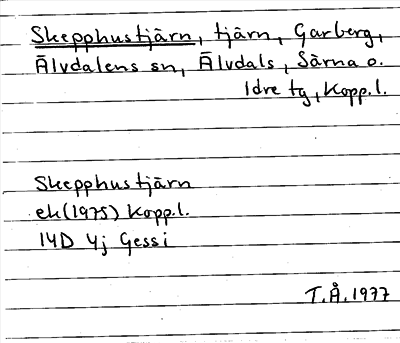 Skepphustjärn, tjärn, Garberg,
Älvdalens sn, Älvdals, Särna o.
Idre tg, Kopp.l.
Skepphustjärn
ek(1975) Kopp.l.
14D 4j Gessi
T.Å.1977